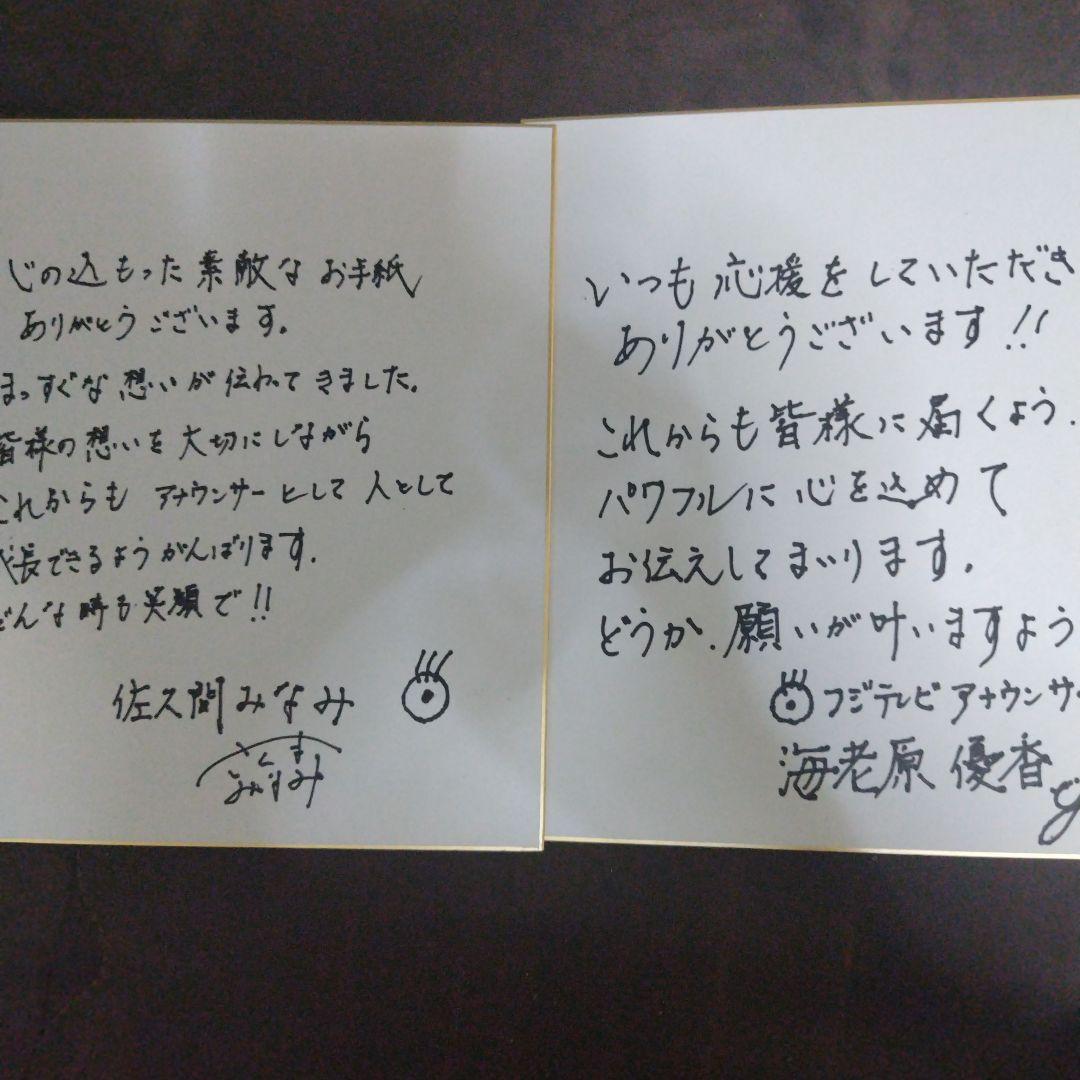 の込もった素敵なお手紙
ありがとうございます。
まっすぐな想いが伝わってきました。
皆様の想いを大切にしながら
これからも アナウンサーとして 人として
成長できるようがんばります。
どんな時も笑顔で!!
佐久間みなみ
さくま
みなみ
いつも応援をしていただき
ありがとうございます!!
これからも皆様に届くよう、
パワフルに心を込めて
お伝えしてまいります。
どうか、願いが叶いますよう
フジテレビ アナウンサー
海老原 優香